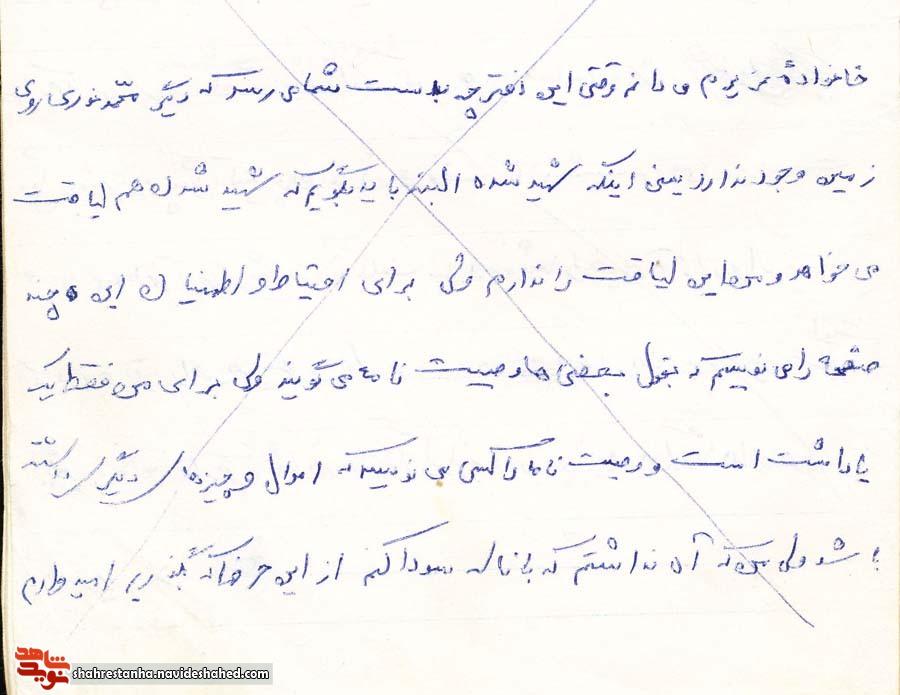 خانوادهٔ عزیزم می دانم وقتی این دفترچه بدست شما می رسد که دیگر محمد نوری روی
زمین وجود ندارد یعنی اینکه شهید شده البته باید بگویم که شهید شدن هم لیاقت
می خواهد و من این لیاقت را ندارم ولی برای احتیاط و اطمینان این چند
صفحه را می نویسم که بقول بعضی ها وصیت نامه می گویند ولی برای من فقط یک
یاداشت است وصیت نامه را کسی می نویسد که اموال و چیزهای دیگر داشته
باشد ولی من که آه نداشتم که با ناله سودا کنم از این حرفها که بگذریم امیدوارم
نوید شاهد
shahrestanha.navideshahed.com